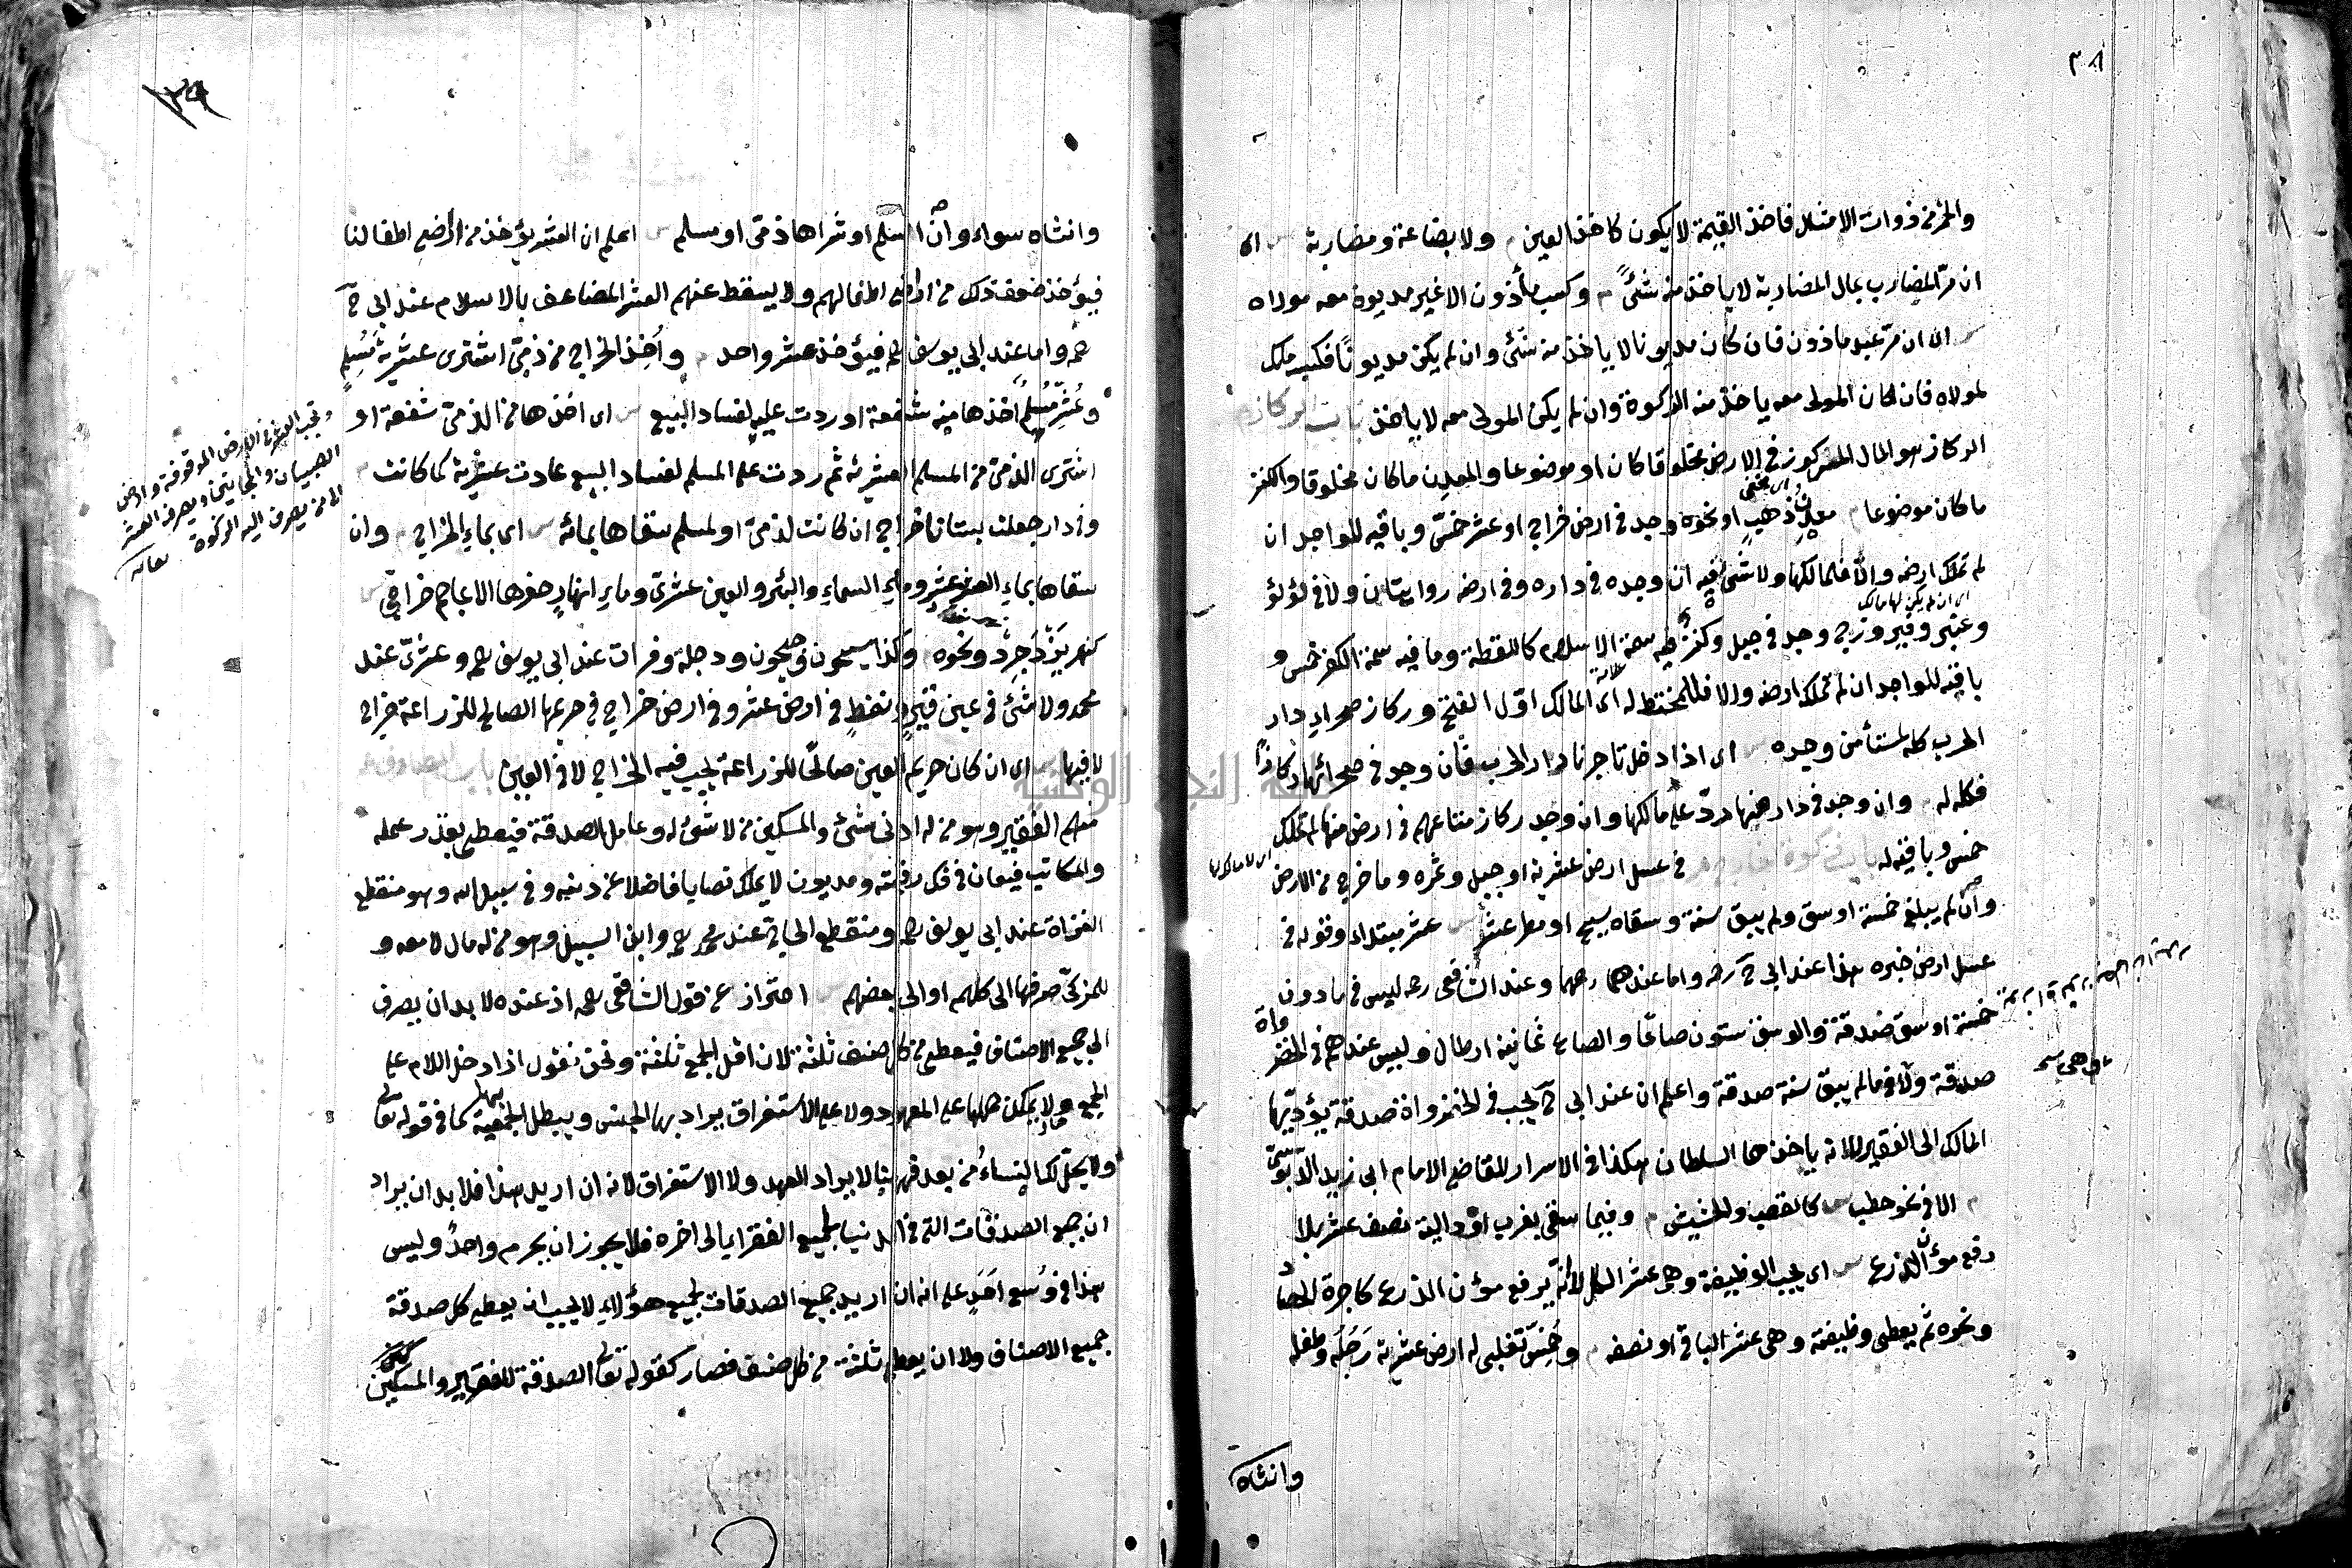 ٣٨
والخمر من ذوات الامثال فاخذ القيمة لا يكون كاخذ العين م ولا بضاعة ومضاربة س اى
ان مرّ المضارب بمال المضاربة لا ياخذ منه شئ م وكسب مأذون الا غير مديون معه مولاه
س اى ان مرّ عبد ماذون فان كان مديونا لا ياخذ منه شئ وان لم يكن مديونًا فكسبه ملك
لمولاه فان كان المولى معه ياخذ منه الزكوة وان لم يكن المولى معه لا ياخذ باب الركاز م
الركاز هو المال المركوز فى الارض مخلوقا كان او موضوعا والمعدن ما كان مخلوقا والكنز
ما كان موضوعا م معدن ذهبٍ او نحوه وجد فى ارض خراج او عشر خمّس وباقيه للواجد ان
لم تملك ارضه والّا فلمالكها ولا شئ فيه ان وجده فى داره وفى ارضه روايتان ولا فى لؤلؤ
اى ان لم يكن لها مالك
وعنبر وفيروزج وجد فى جبل وكنز فيه سمة الاسلام كاللقطة وما فيه سمة الكفر خمس و
علامة
باقيه للواجد ان لم تملك ارضه والا فللمختط له اى المالك اوّل الفتح وركاز صحراء دار
الحرب كله لمستأمن وجده س اى اذا دخل تاجرنا دار الحرب فان وجد فى صحرائها ركازا
فكله له م وان وجد فى دار منها ردّ على مالكها وان وجد ركاز متاعهم فى ارض منها لم تملك
اى لا مالك لها
خمس وباقيه له باب زكوة الخارج م فى عسل ارض عشرية او جبل وثمره وما خرج من الارض
وان لم يبلغ خمسة اوسق ولم يبق سنة وسقاه سيح او مطر عشر س عشر مبتداء وقوله فى
عسل ارض خبره هذا عند ابى ح رحه واما عندهما رحهما وعند الشافعى رحه ليس فى ما دون
خمسة اوسق صدقة والوسق ستون صاعًا والصاع ثمانية ارطال وليس عندهم فى الخضروات
صدقة ولا فى ما لم يبق سنة صدقة واعلم ان عند ابى ح يجب فى الخضروات صدقة يؤديها
المالك الى الفقير لا انه ياخذها السلطان هكذا فى الاسرار للقاضى الامام ابى زيد الدّبوسىّ
م الا فى نحو حطب س كالقصب والحشيش م وفيما سقى بغرب او دالية نصف عشر بلا
رفع مؤن الزرع س اى يجب الوظيفة وهى عشر الكل لا انه يرفع مؤن الزرع كاجرة الحصاد
ونحوه ثم يعطى وظيفته وهى عشر الباقى او نصفه م وخمس تغلبى له ارض عشرية رَجُله وطفله
وانثاه
٣٩
وانثاه سواء وان اسلم او شراها ذمىّ او مسلم س اعلم ان العشر يؤخذ من اراضى اطفالنا
فيؤخذ ضعف ذلك من اراضى اطفالهم ولا يسقط عنهم العشر المضاعف بالاسلام عند ابى ح
رحه واما عند ابى يوسف رحه فيؤخذ عشر واحد م واُخذ الخراج من ذمىّ اشترى عشرية مُسْلِمٍ
وعُشّر مُسْلِمٌ اخذها منه شفعة او ردت عليه لفساد البيع س اى اخذها من الذمىّ شفعة او
اشترى الذمىّ من المسلم العشرية ثم ردت على المسلم لفساد البيع عادت عشرية كما كانت م
وفى دار جعلت بستانا خراج ان كانت لذمىّ او لمسلم سقاها بمائه س اى بماء الخراج م وان
سقاها بماء العشر عشر وماء السماء والبئر والعين عشرىّ وماء انهار حفرها الاعاجم خراجى س
كنهر يَزْدَجِرد ونحوه وكذا سيحون وجيحون ودجلة وفرات عند ابى يوسف رحه وعشرىّ عند
محمد ولا شئ فى عين قيرٍ ونفطٍ فى ارض عشر وفى ارض خراج فى حريمها الصالح للزراعة خراج
لا فيها س اى ان كان حريم العين صالحًا للزراعة يجب فيه الخراج لا فى العين باب المصارف م
منهم الفقير وهو من له ادنى شئ والمسكين من لا شئ له وعامل الصدقة فيعطى بقدر عمله
والمكاتب فيعان فى فك رقبته ومديون لا يملك نصابا فاضلا عن دينه وفى سبيل الله وهو منقطع
الغزاة عند ابى يوسف رحه ومنقطع الحاج عند محمد رحه وابن السبيل وهو من له مال لا معه و
للمزكّى صرفها الى كلهم او الى بعضهم س احتراز عن قول الشافعى رحه اذ عنده لا بد ان يصرف
الى جميع الاصناف فيعطى من كل صنف ثلثة لان اقل الجمع ثلثة ونحن نقول اذا دخل اللام على
الجمع ولا يمكن حملها على المعهود ولا على الاستغراق يراد بها الجنس ويبطل الجمعية كما فى قوله تعالى
ولا يحلّ لك النساءُ من بعد فههنا لا يراد العهد ولا الاستغراق لانه ان اريد هذا فلا بد ان يراد
ان جميع الصدقات التى فى الدنيا لجميع الفقراء الى اخره فلا يجوز ان يحرم واحدٌ وليس
هذا فى وُسع احَدٍ على انه ان اريد جميع الصدقات لجميع هؤلاء لا يجب ان يعطى كل صدقة
جميع الاصناف ولا ان يعطى ثلثة من كل صنف فصار كقوله تع الصدقة للفقير والمسكين
وتجب العشر فى الارض الموقوفة وارض
الصبيان والمجانين ويصرف العشر
الى من يصرف اليه الزكوة